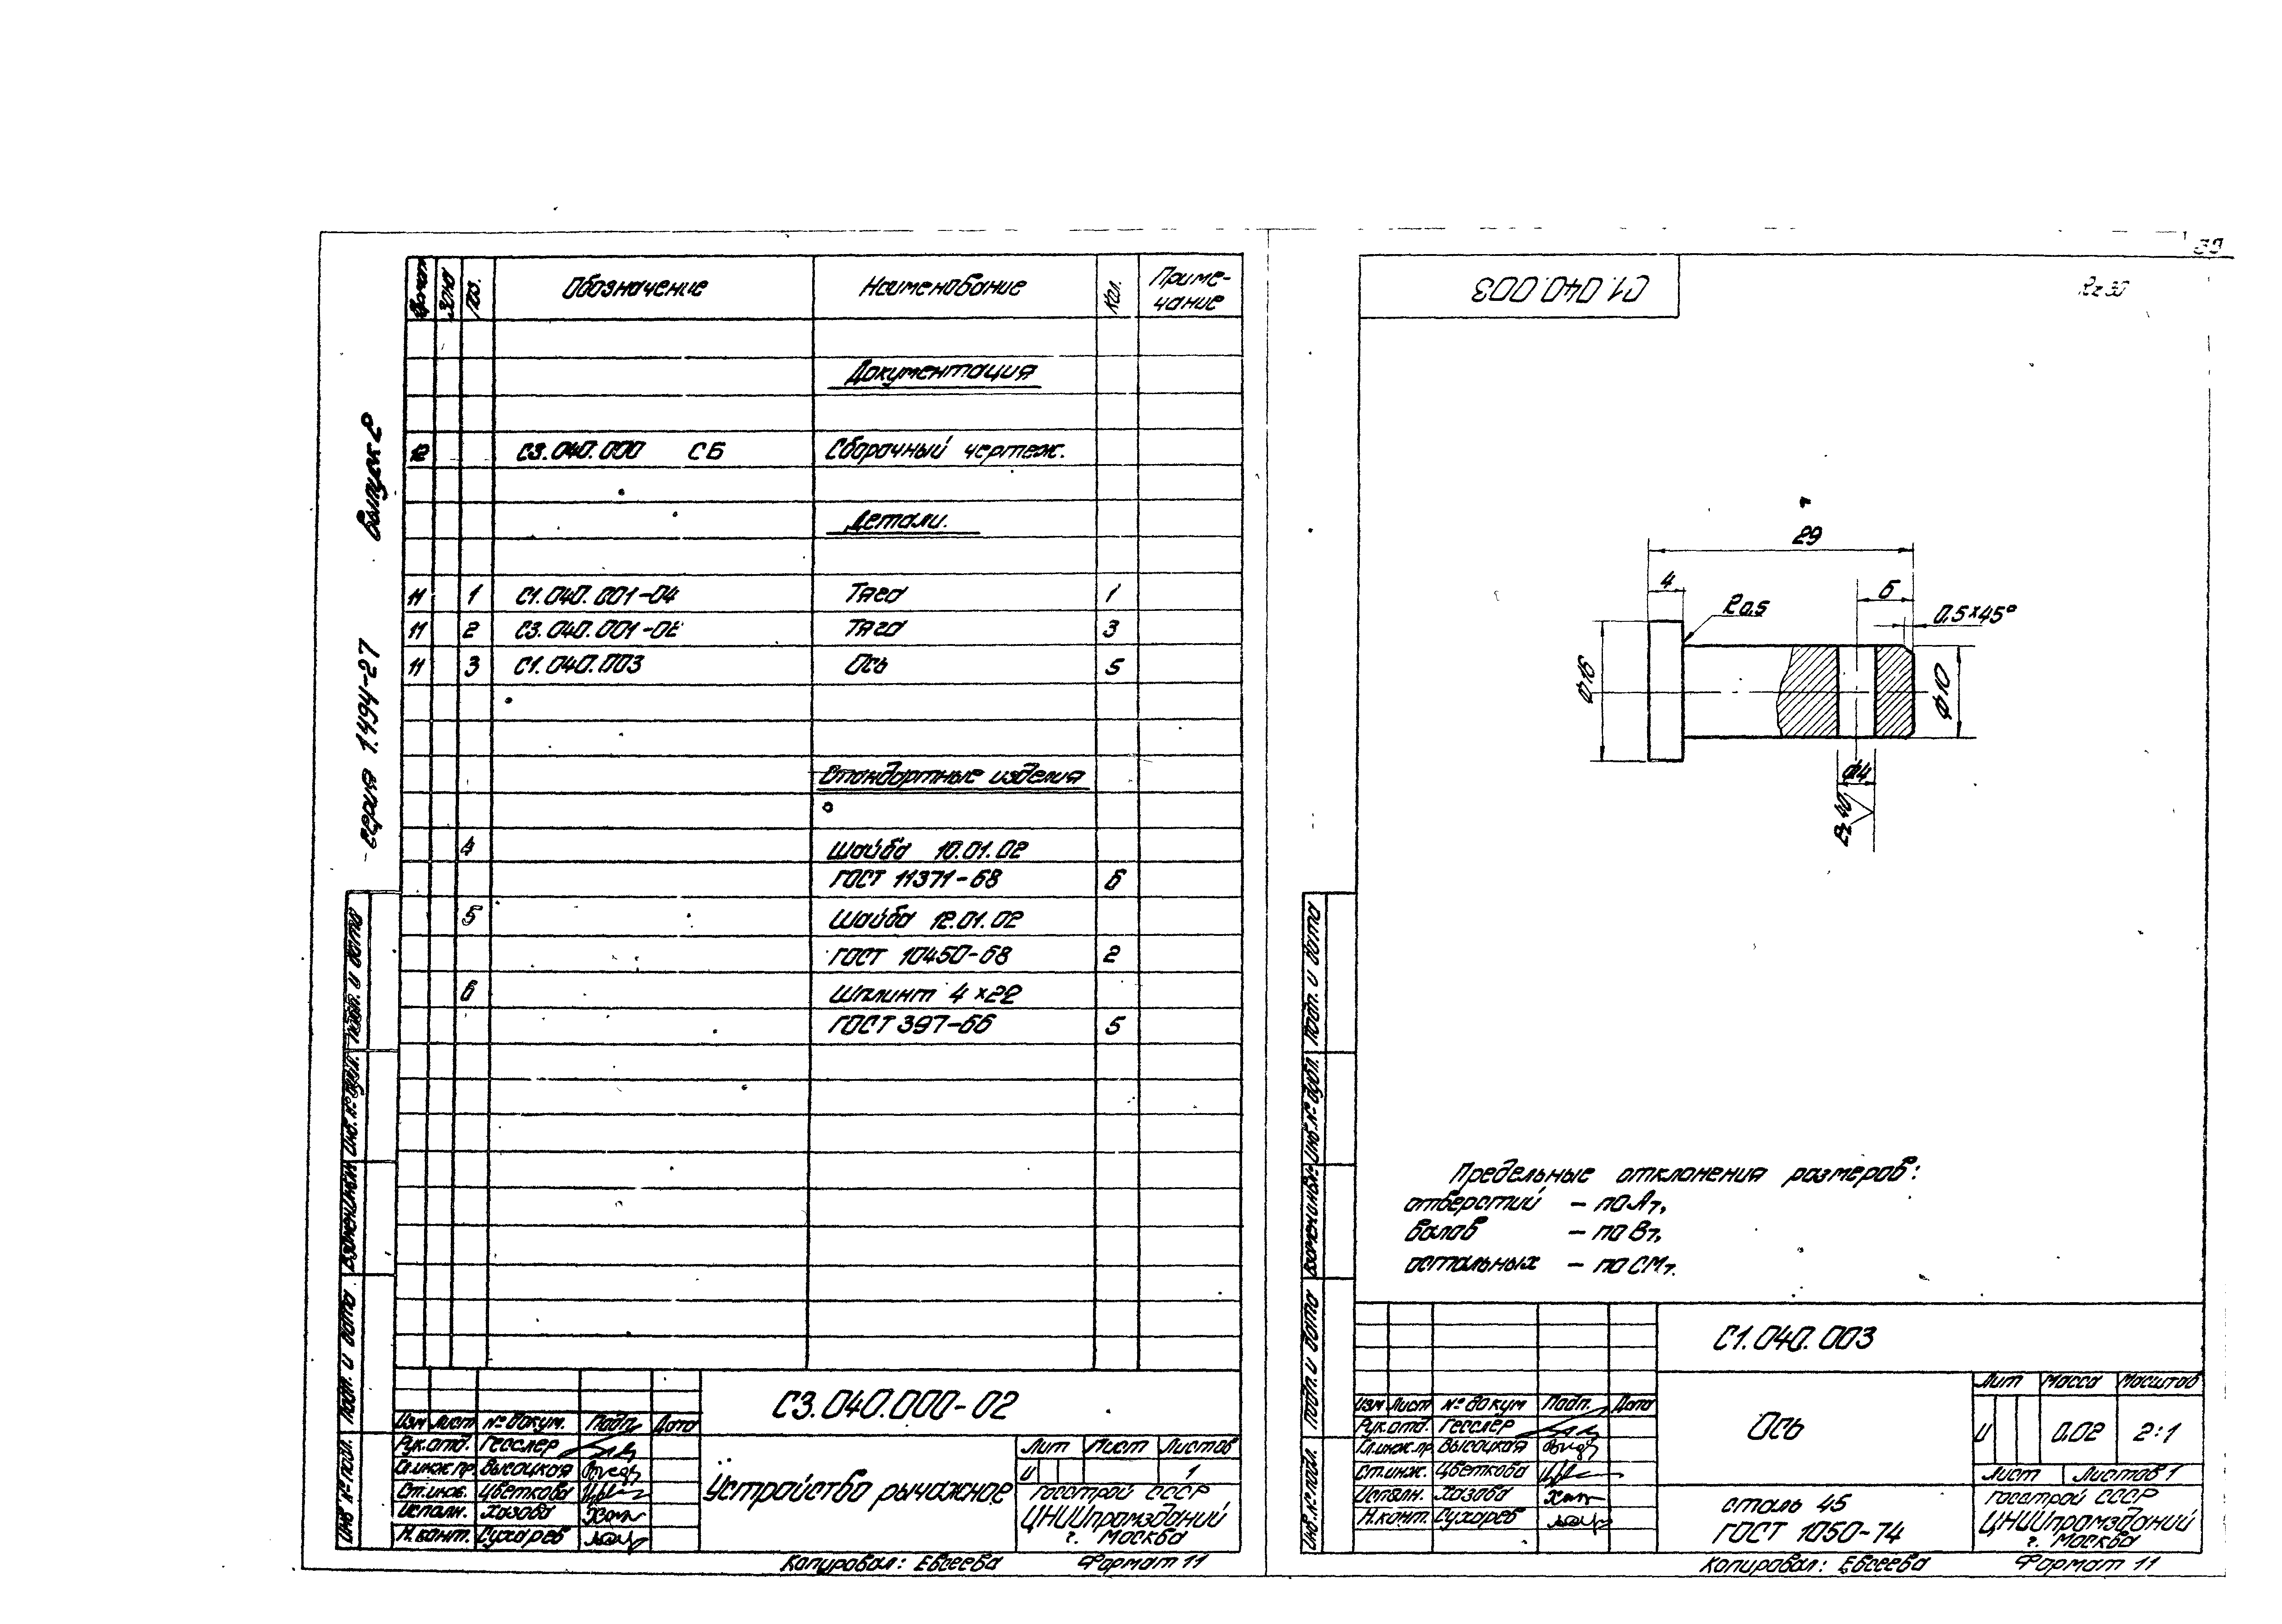 39
Формат Зона Поз. Обозначение Наименование Кол. Приме-
чание
Документация
12 С3.040.000 СБ Сборочный чертеж.
Детали.
11 1 С1.040.001-04 Тяга 1
11 2 С3.040.001-02 Тяга 3
11 3 С1.040.003 Ось 5
Стандартные изделия
4 Шайба 10.01.02
ГОСТ 11371-68 6
5 Шайба 12.01.02
ГОСТ 10450-68 2
6 Шплинт 4×22
ГОСТ 397-66 5
серия 1.494-27 выпуск 2
Подп. и дата
Инв.№ дубл.
Взамен инв.№
Подп. и дата
Инв №подл.
С3.040.000-02
Изм Лист № докум. Подп. Дата
Рук.отд. Гесслер
Гл.инж.пр. Высоцкая
Ст.инж. Цветкова
Исполн. Хазова
Н.конт. Сухарев
Устройство рычажное
Лит Лист Листов
И 1
Госстрой СССР
ЦНИИпромзданий
г. Москва
Копировал: Евсеева Формат 11
С1.040.003
Rz 30
29
4
R 0,5
6
0,5×45°
ф16
ф10
ф4
Rz 40
Предельные отклонения размеров:
отверстий – по А7,
валов – по В7,
остальных – по СМ7.
Подп. и дата
Инв.№ дубл.
Взамен инв.№
Подп. и дата
Инв.№ подл.
С1.040.003
Изм Лист № докум Подп. Дата
Рук.отд. Гесслер
Гл.инж.пр. Высоцкая
Ст.инж. Цветкова
Исполн. Хазова
Н.конт. Сухарев
Ось
Лит Масса Масштаб
И 0.02 2:1
Лист Листов 1
сталь 45
ГОСТ 1050-74
Госстрой СССР
ЦНИИпромзданий
г. Москва
Копировал: Евсеева Формат 11